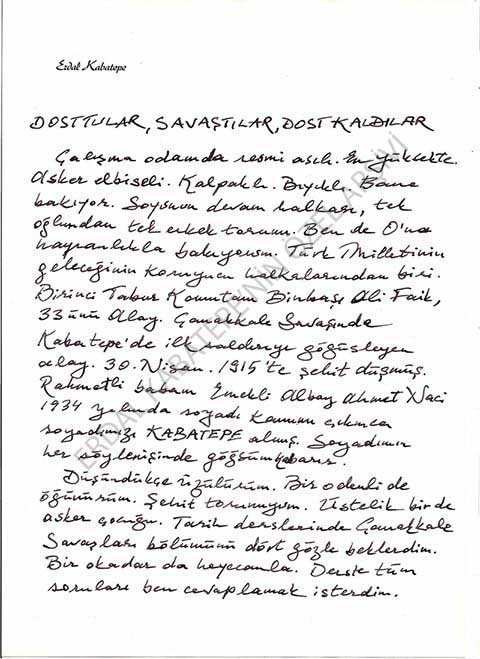 Erdal Kabatepe
DOSTTULAR, SAVAŞTILAR, DOST KALDILAR
Çalışma odamda resmi asılı. En yüksekte.
Asker elbiseli. Kalpaklı. Bıyıklı. Bana
bakıyor. Soyunun devam halkası, tek
oğlundan tek erkek torunu. Ben de O'na
hayranlıkla bakıyorum. Türk Milletinin
geleceğinin koruyucu halkalarından biri.
Birinci Tabur Komutanı Binbaşı Ali Faik,
33üncü Alay. Çanakkale Savaşında
Kabatepe'de ilk saldırıyı göğüsleyen
alay. 30. Nisan. 1915'te şehit düşmüş.
Rahmetli babam Emekli Albay Ahmet Naci
1934 yılında soyadı kanunu çıkınca
soyadımızı KABATEPE almış. Soyadımın
her söylenişinde göğsüm kabarır.
Düşündükçe üzülürüm. Bir o denli de
öğünürüm. Şehit torunuyum. Üstelik bir de
asker çocuğu. Tarih derslerinde Çanakkale
Savaşları bölümünü dört gözle beklerdim.
Bir okadar da heyecanla. Derste tüm
soruları ben cevaplamak isterdim.
ERDAL KABATEPE'NİN ÖZEL ARŞİVİ